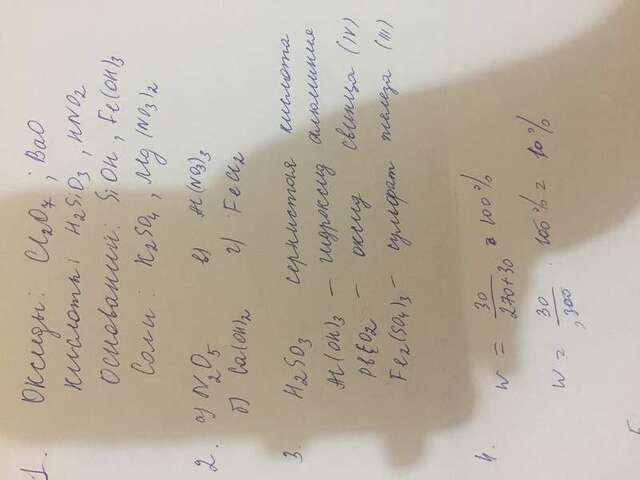 1. Оксиды: Cl2O7; BaO
кислоты: H2SiO3, HNO2
Оснований: SiOH, Fe(OH)3
Соли: K2SO4, Mg(NO3)2
2. а) N2O5 в) Al(NO3)3
б) Ca(OH)2 г) FeCl2
3. H2SO3 сернистая кислота
Al(OH)3 – гидроксид алюминия
PbO2 – оксид свинца (IV)
Fe2(SO4)3 – сульфат железа (III)
4. w = 30/270+30 · 100%
w = 30/300 · 100% = 10%